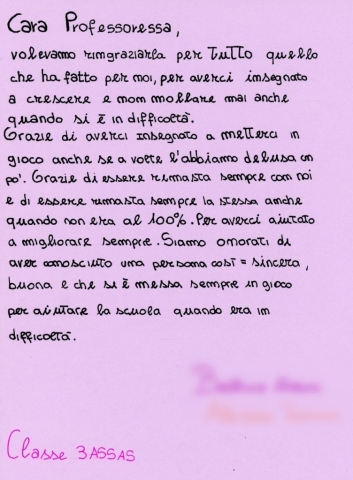 Cara Professoressa,
volevamo ringraziarla per tutto quello
che ha fatto per noi, per averci insegnato
a crescere e non mollare mai anche
quando si è in difficoltà.
Grazie di averci insegnato a metterci in
gioco anche se a volte l'abbiamo delusa un
po'. Grazie di essere rimasta sempre con noi
e di essere rimasta sempre la stessa anche
quando non era al 100%. Per averci aiutato
a migliorare sempre. Siamo onorati di
aver conosciuto una persona così = sincera,
buona e che si è messa sempre in gioco
per aiutare la scuola quando era in
difficoltà.
Classe 3ASSAS